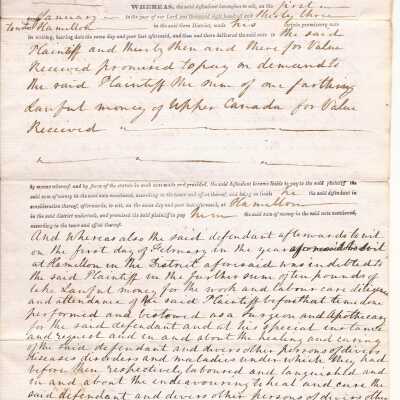 WHEREAS, the said defendant heretofore to wit, on the first
January in the year of our Lord one thousand eight hundred and thirty three
Hamilton
certain promissory note
in writing, bearing date the same day and year first aforesaid, and then and there delivered the said note to the said
Plaintiff and thereby then and there for Value
Received promised to pay on demand to
the said Plaintiff the sum of one farthing
Lawful money of Upper Canada for Value
Received
By means whereof, and by force of the statute in such case made and provided, the said defendant became liable to pay to the said plaintiff the
said sum of money in the said note mentioned, according to the tenor and effect thereof, and being so liable he the said defendant in
consideration thereof, afterwards, to wit, on the same day and year last aforesaid, at Hamilton
in the said district undertook, and promised the said plaintiff to pay him the said sum of money in the said note mentioned,
according to the tenor and effect thereof.
And Whereas also the said defendant afterwards to wit
on the first day of February in the year aforesaid to wit
at Hamilton in the District aforesaid was indebted to
the said Plaintiff in the further sum of ten pounds of
like Lawful money for the work and labour care diligence
and attendance of the said Plaintiff before that time done
performed and bestowed as a Surgeon and Apothecary
for the said defendant and at his special instance
and request and in and about the healing and curing
of the said defendant and divers other persons of divers
diseases disorders and maladies under which they had
before then respectively laboured and languished and
in and about the endeavouring to heal and cure the
said defendant and divers other persons of divers other